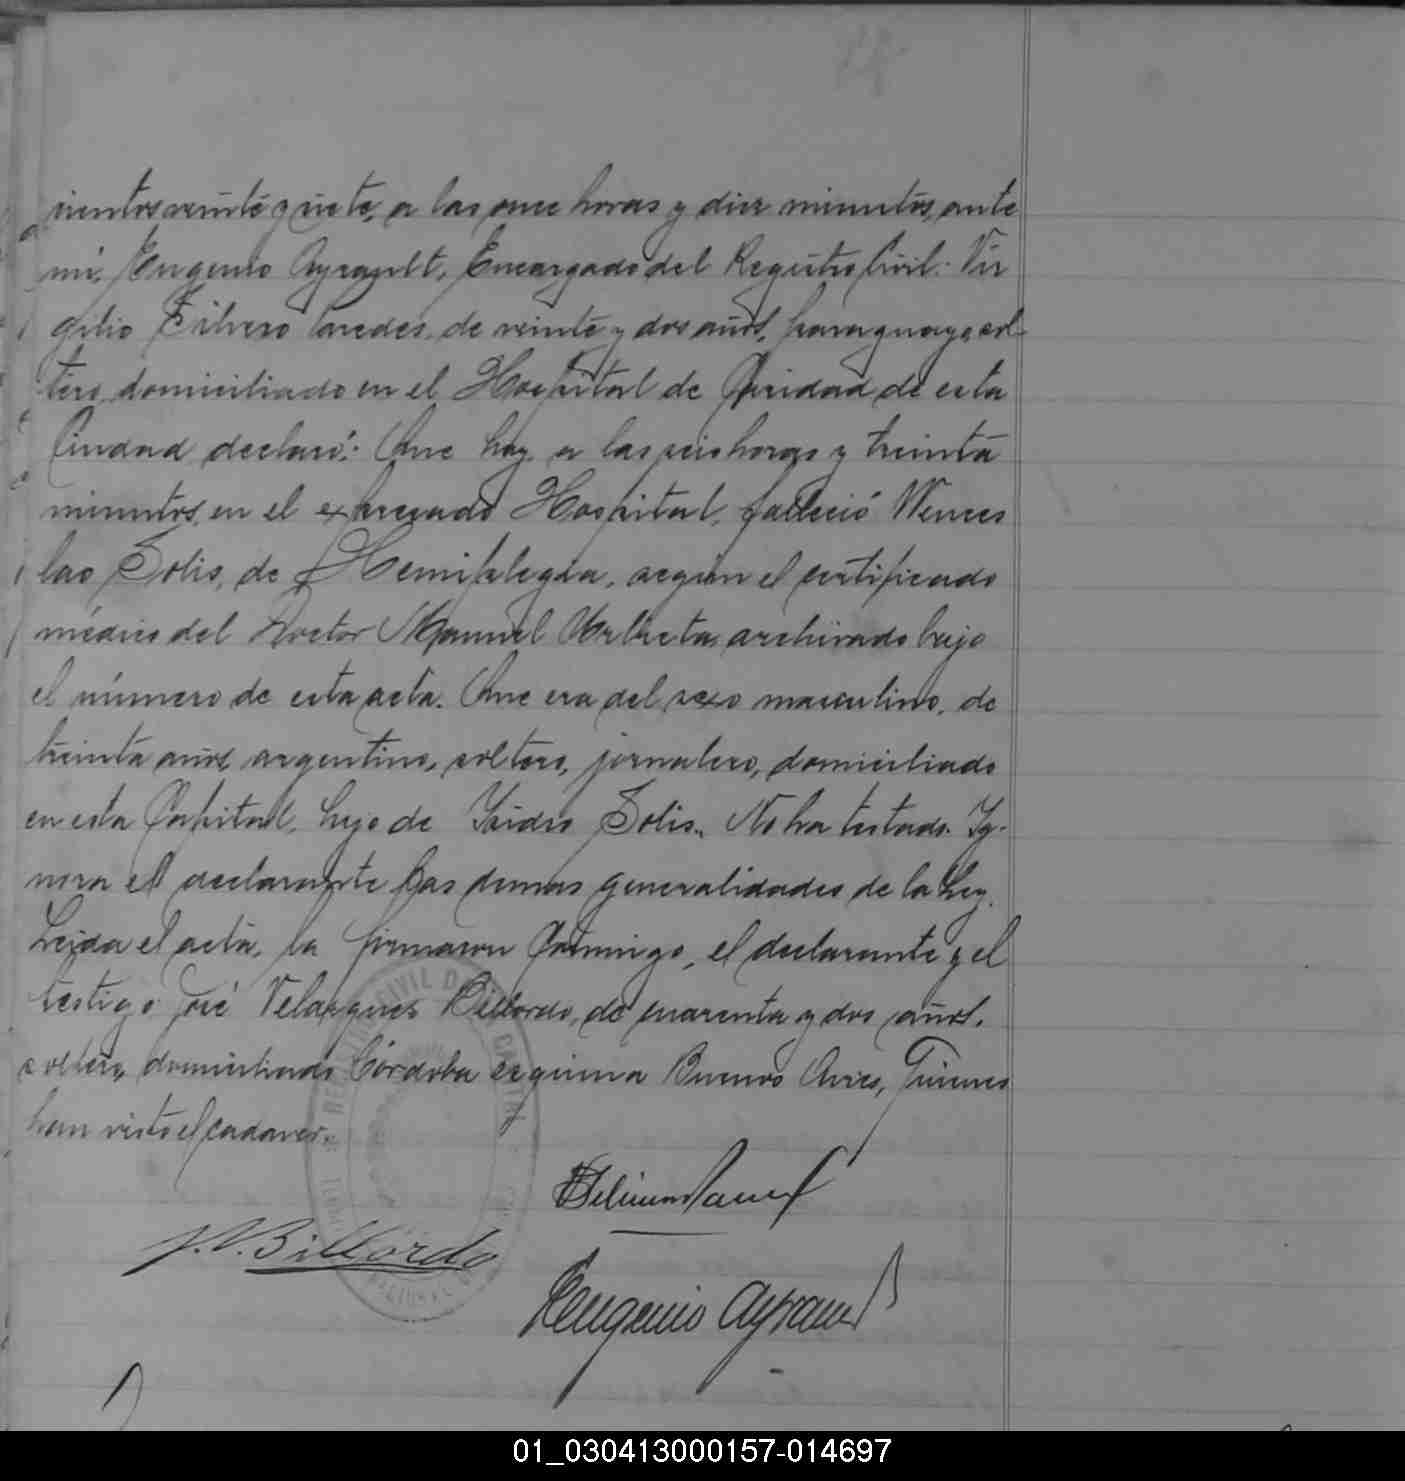 cientos veinte y siete, a las once horas y diez minutos, ante
mi, Eugenio Ayrault, Encargado del Registro Civil: Vir
gilio Silvero Paredes, de veinte y dos años, paraguayo, sol
tero, domiciliado en el Hospital de Caridad de esta
Ciudad declaró: Que hoy a las seis horas y treinta
minutos, en el expresado Hospital, falleció Wences
lao Solis, de Hemiplegia, según el certificado
médico del Doctor Manuel archivado bajo
el número de esta acta. Que era del sexo masculino, de
treinta años, argentino, soltero, jornalero, domiciliado
en esta Capital, hijo de Isidro Solis. No ha testado. Ig-
nora el declarante las demas generalidades de la Ley.
Leida el acta, la firmaron Conmigo, el declarante y el
testigo José Velazquez Billordo, de cuarenta y dos años,
soltero, domiciliado Córdoba esquina Buenos Aires, Quienes
han visto el cadaver.
J.V. Billordo
Eugenio Ayrault
01_030413000157-014697